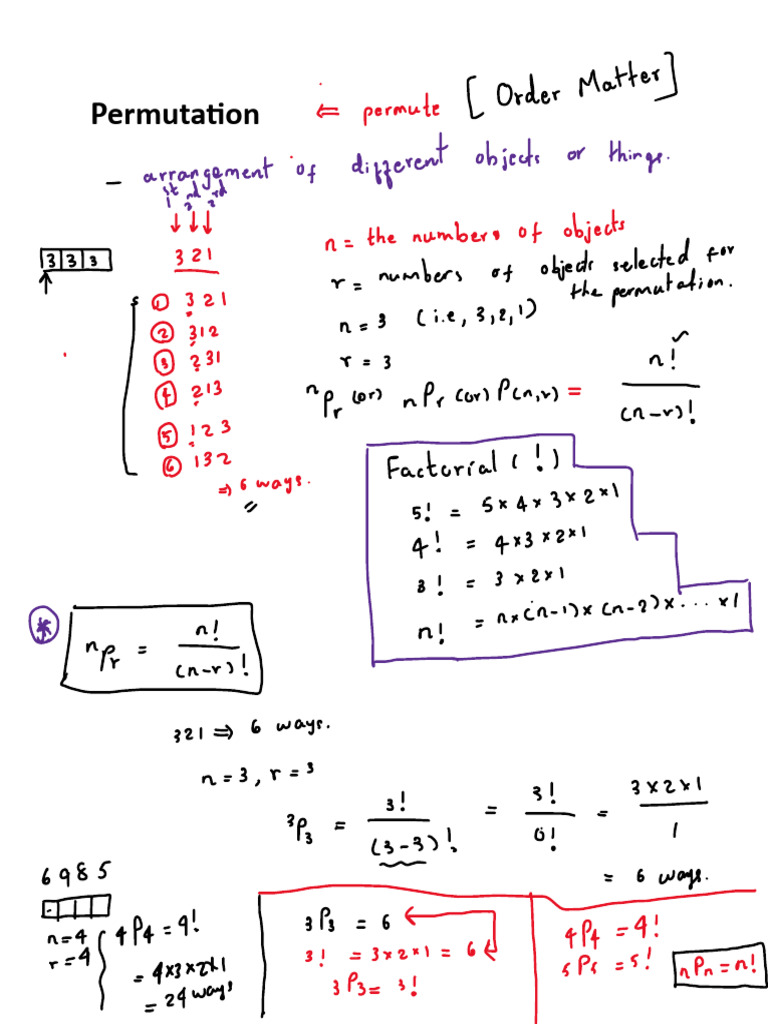 Permutation ⇐ permute [Order Matter]
– arrangement of different objects or things.
1st 2nd 3rd
↓ ↓ ↓
3 2 1
3 3 3
① 3 2 1
② 3 1 2
③ 2 3 1
④ 2 1 3
⑤ 1 2 3
⑥ 1 3 2
⇒ 6 ways.
n = the numbers of objects
r = numbers of objects selected for
the permutation.
n = 3 (i.e, 3, 2, 1)
r = 3
ⁿPr (or) nPr (or) P(n,r) = n! / (n-r)!
Factorial ( ! )
5! = 5 × 4 × 3 × 2 × 1
4! = 4 × 3 × 2 × 1
3! = 3 × 2 × 1
n! = n × (n-1) × (n-2) × ... × 1
* ⁿPr = n! / (n-r)!
321 ⇒ 6 ways.
n = 3, r = 3
³P₃ = 3! / (3-3)! = 3! / 0! = 3 × 2 × 1 / 1
= 6 ways.
6 9 8 5
n = 4
r = 4
4P4 = 4!
= 4×3×2×1
= 24 ways
3P3 = 6
3! = 3 × 2 × 1 = 6
3P3 = 3!
4P4 = 4!
5P5 = 5!
nPn = n!